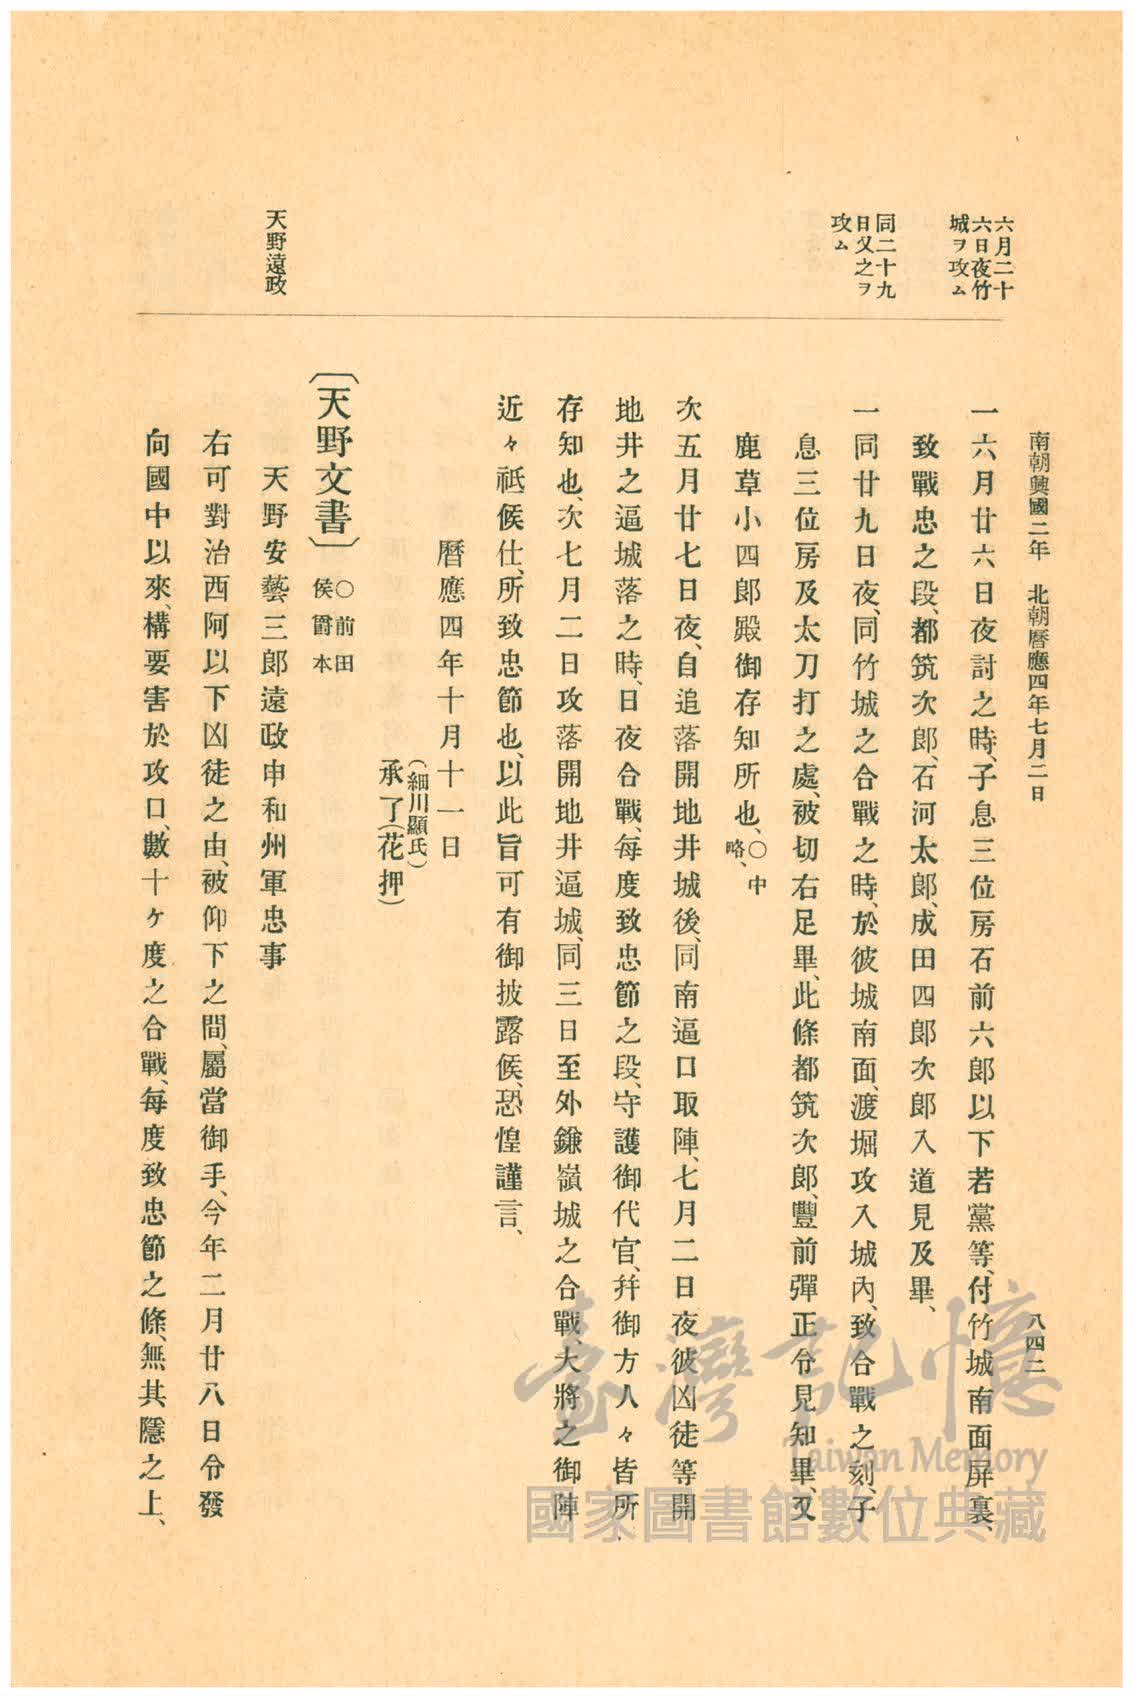 南朝興國二年 北朝曆應四年七月二日
八四二
六月二十
六日夜竹
城ヲ攻ム
同二十九
日又之ヲ
攻ム
天野遠政
一六月廿六日夜討之時、子息三位房石前六郎以下若黨等、付竹城南面屏裏、
致戰忠之段、都筑次郎、石河太郎、成田四郎次郎入道見及畢、
一同廿九日夜、同竹城之合戰之時、於彼城南面、渡堀攻入城內、致合戰之刻、子
息三位房及太刀打之處、被切右足畢、此條都筑次郎、豐前彈正令見知畢、又
鹿草小四郎殿御存知所也、○中略、
次五月廿七日夜、自追落開地井城後、同南逼口取陣、七月二日夜彼凶徒等開
地井之逼城落之時、日夜合戰、每度致忠節之段、守護御代官、幷御方人々皆所
存知也、次七月二日攻落開地井逼城、同三日至外鎌嶺城之合戰、大將之御陣
近々祗候仕、所致忠節也、以此旨可有御披露候、恐惶謹言、
曆應四年十月十一日
(細川顯氏)
承了(花押)
〔天野文書〕○前田侯爵本
天野安藝三郎遠政申和州軍忠事
右可對治西阿以下凶徒之由、被仰下之間、屬當御手、今年二月廿八日令發
向國中以來、構要害於攻口、數十ヶ度之合戰、每度致忠節之條、無其隱之上、
臺灣記憶
Taiwan Memory
國家圖書館數位典藏